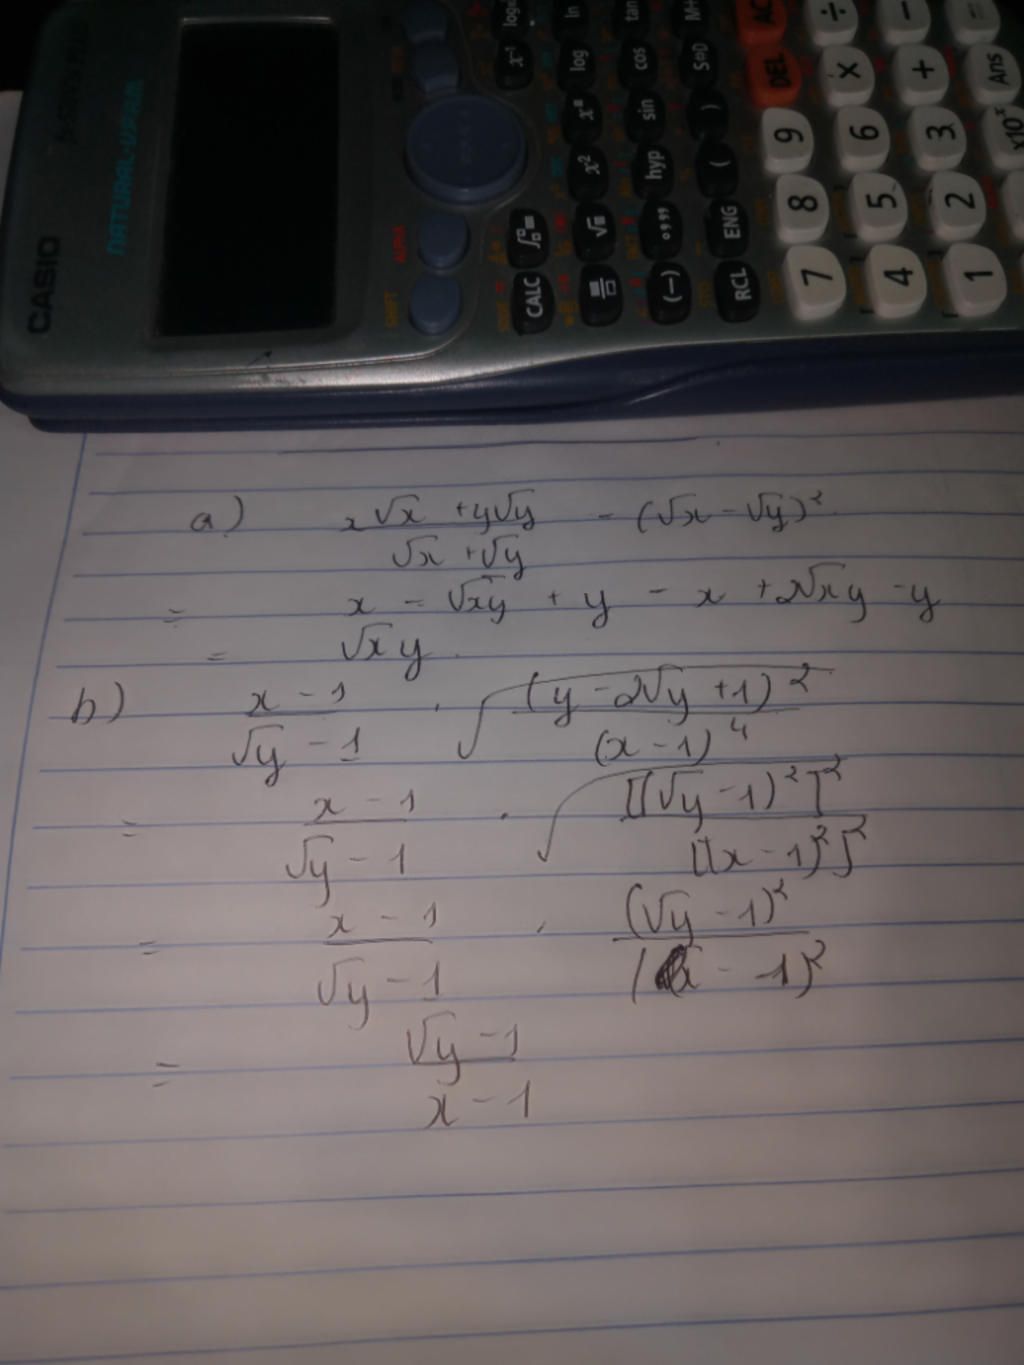 CASIO
NATURAL-V.P.A.M.
SHIFT ALPHA
CALC ∫ x⁻¹ log
√ x² xⁿ log ln
(-) °,,, hyp sin cos tan
RCL ENG ( ) S⇔D M+
7 8 9 DEL AC
4 5 6 × ÷
1 2 3 + −
×10ˣ Ans =
a) (x√x + y√y)/(√x + √y) - (√x - √y)²
= x - √xy + y - x + 2√xy - y
= √xy.
b) (x - 1)/(√y - 1) . √((y - 2√y + 1)²/(x - 1)⁴)
= (x - 1)/(√y - 1) . √([(√y - 1)²]²/[(x - 1)²]²)
= (x - 1)/(√y - 1) . (√y - 1)²/(x - 1)²
= (√y - 1)/(x - 1)